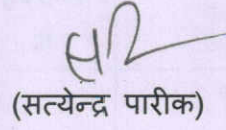 (सत्येन्द्र पारीक)